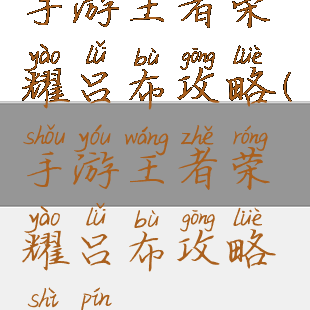 手游王者荣
yào lǚ bù gōng lüè
耀吕布攻略(
shǒu yóu wáng zhě róng
手游王者荣
yào lǚ bù gōng lüè
耀吕布攻略
shì pín